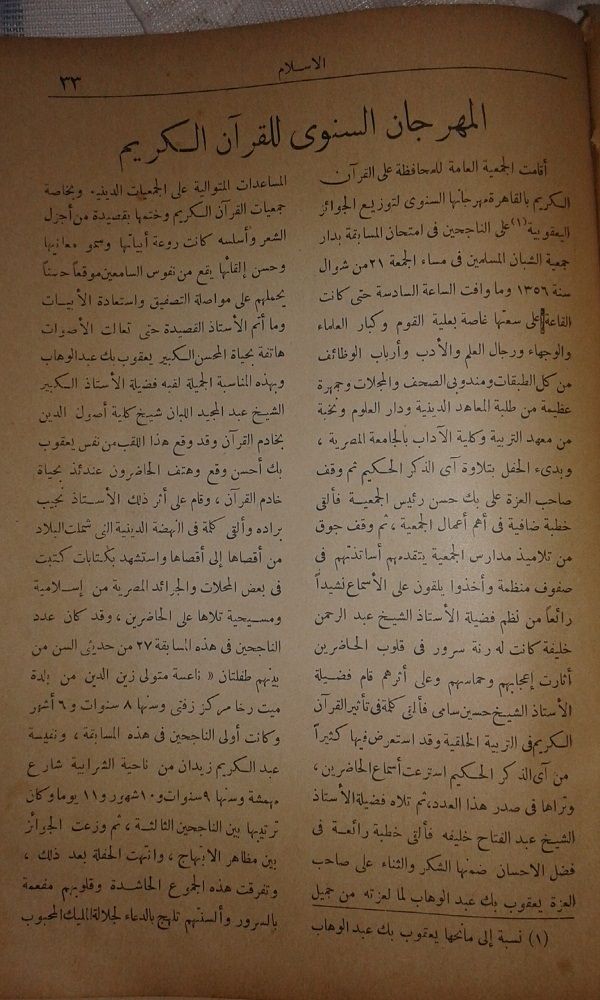 الاسلام
٣٣
المهرجان السنوى للقرآن الكريم
أقامت الجمعية العامة للمحافظة على القرآن
الكريم بالقاهرة مهرجانها السنوى لتوزيع الجوائز
اليعقوبية (١) على الناجحين فى امتحان المسابقة بدار
جمعية الشبان المسلمين فى مساء الجمعة ٢١ من شوال
سنة ١٣٥٦ وما وافت الساعة السادسة حتى كانت
القاعة على سعتها غاصة بعلية القوم وكبار العلماء
والوجهاء ورجال العلم والأدب وأرباب الوظائف
من كل الطبقات ومندوبى الصحف والمجلات وجمهرة
عظيمة من طلبة المعاهد الدينية ودار العلوم ونخبة
من معهد التربية وكلية الآداب بالجامعة المصرية ،
وبدىء الحفل بتلاوة آى الذكر الحكيم ثم وقف
صاحب العزة على بك حسن رئيس الجمعية فألقى
خطبة ضافية فى أهم أعمال الجمعية ، ثم وقف جوق
من تلاميذ مدارس الجمعية يتقدمهم أساتذتهم فى
صفوف منظمة وأخذوا يلقون على الأسماع نشيداً
رائعاً من نظم فضيلة الأستاذ الشيخ عبد الرحمن
خليفة كانت له رنة سرور فى قلوب الحاضرين
أثارت إعجابهم وحماسهم وعلى أثرهم قام فضيلة
الأستاذ الشيخ حسين سامى فألقى كلمة فى تأثير القرآن
الكريم فى التربية الخلقية وقد استعرض فيها كثيراً
من آى الذكر الحكيم استرعت أسماع الحاضرين ،
وتراها فى صدر هذا العدد، ثم تلاه فضيلة الأستاذ
الشيخ عبد الفتاح خليفه فألقى خطبة رائعة فى
فضل الاحسان ضمنها الشكر والثناء على صاحب
العزة يعقوب بك عبد الوهاب لما لعزته من جميل
(١) نسبة إلى مانحها يعقوب بك عبد الوهاب
المساعدات المتوالية على الجمعيات الدينية وبخاصة
جمعيات القرآن الكريم وختمها بقصيدة من أجزل
الشعر وأسلسه كانت روعة أبياتها وسمو معانيها
وحسن إلقائها يقع من نفوس السامعين موقعاً حسناً
يحملهم على مواصلة التصفيق واستعادة الأبيات
وما أتم الأستاذ القصيدة حتى تعالت الأصوات
هاتفة بحياة المحسن الكبير يعقوب بك عبد الوهاب
وبهذه المناسبة الجميلة لقبه فضيلة الأستاذ الكبير
الشيخ عبد المجيد اللبان شيخ كلية أصول الدين
بخادم القرآن وقد وقع هذا اللقب من نفس يعقوب
بك أحسن وقع وهتف الحاضرون عندئذ بحياة
خادم القرآن ، وقام على أثر ذلك الأستاذ نجيب
براده وألقى كلمة فى النهضة الدينية التى شملت البلاد
من أقصاها إلى أقصاها واستشهد بكتابات كتبت
فى بعض المجلات والجرائد المصرية من إسلامية
ومسيحية تلاها على الحاضرين ، وقد كان عدد
الناجحين فى هذه المسابقة ٢٧ من حديثى السن من
بينهم طفلتان « ناعسة متولى زين الدين من بلدة
ميت رخا مركز زفتى وسنها ٨ سنوات و ٦ أشهر
وكانت أولى الناجحين فى هذه المسابقة ، ونفيسة
عبد الكريم زيدان من ناحية الشرابية شارع
مهمشة وسنها ٩ سنوات و ١٠ شهور و ١١ يوما وكان
ترتيبها بين الناجحين الثالثة ، ثم وزعت الجوائز
بين مظاهر الابتهاج ، وانتهت الحفلة بعد ذلك ،
وتفرقت هذه الجموع الحاشدة وقلوبهم مفعمة
بالسرور وألسنتهم تلهج بالدعاء لجلالة المليك المحبوب